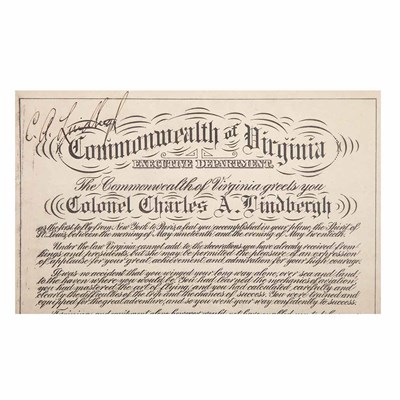 C. A. Lindbergh
Commonwealth of Virginia
EXECUTIVE DEPARTMENT.
The Commonwealth of Virginia greets you
Colonel Charles A. Lindbergh
As the first to fly from New York to Paris, a feat you accomplished in your plane, the Spirit of
St. Louis, between the morning of May nineteenth and the evening of May twentieth.
Under the law Virginia cannot add to the decorations you have already received from
kings and presidents, but she may be permitted the pleasure of an expression
of applause for your great achievement and admiration for your high courage.
It was no accident that you winged your long way alone, over sea and land,
to the haven where you would be. You had learned the mechanics of aviation
you had mastered the art of flying, and you had calculated carefully and
clearly the difficulties of the trip and the chances of success. You were trained and
equipped for the great adventure, and so you went your way confidently to success.